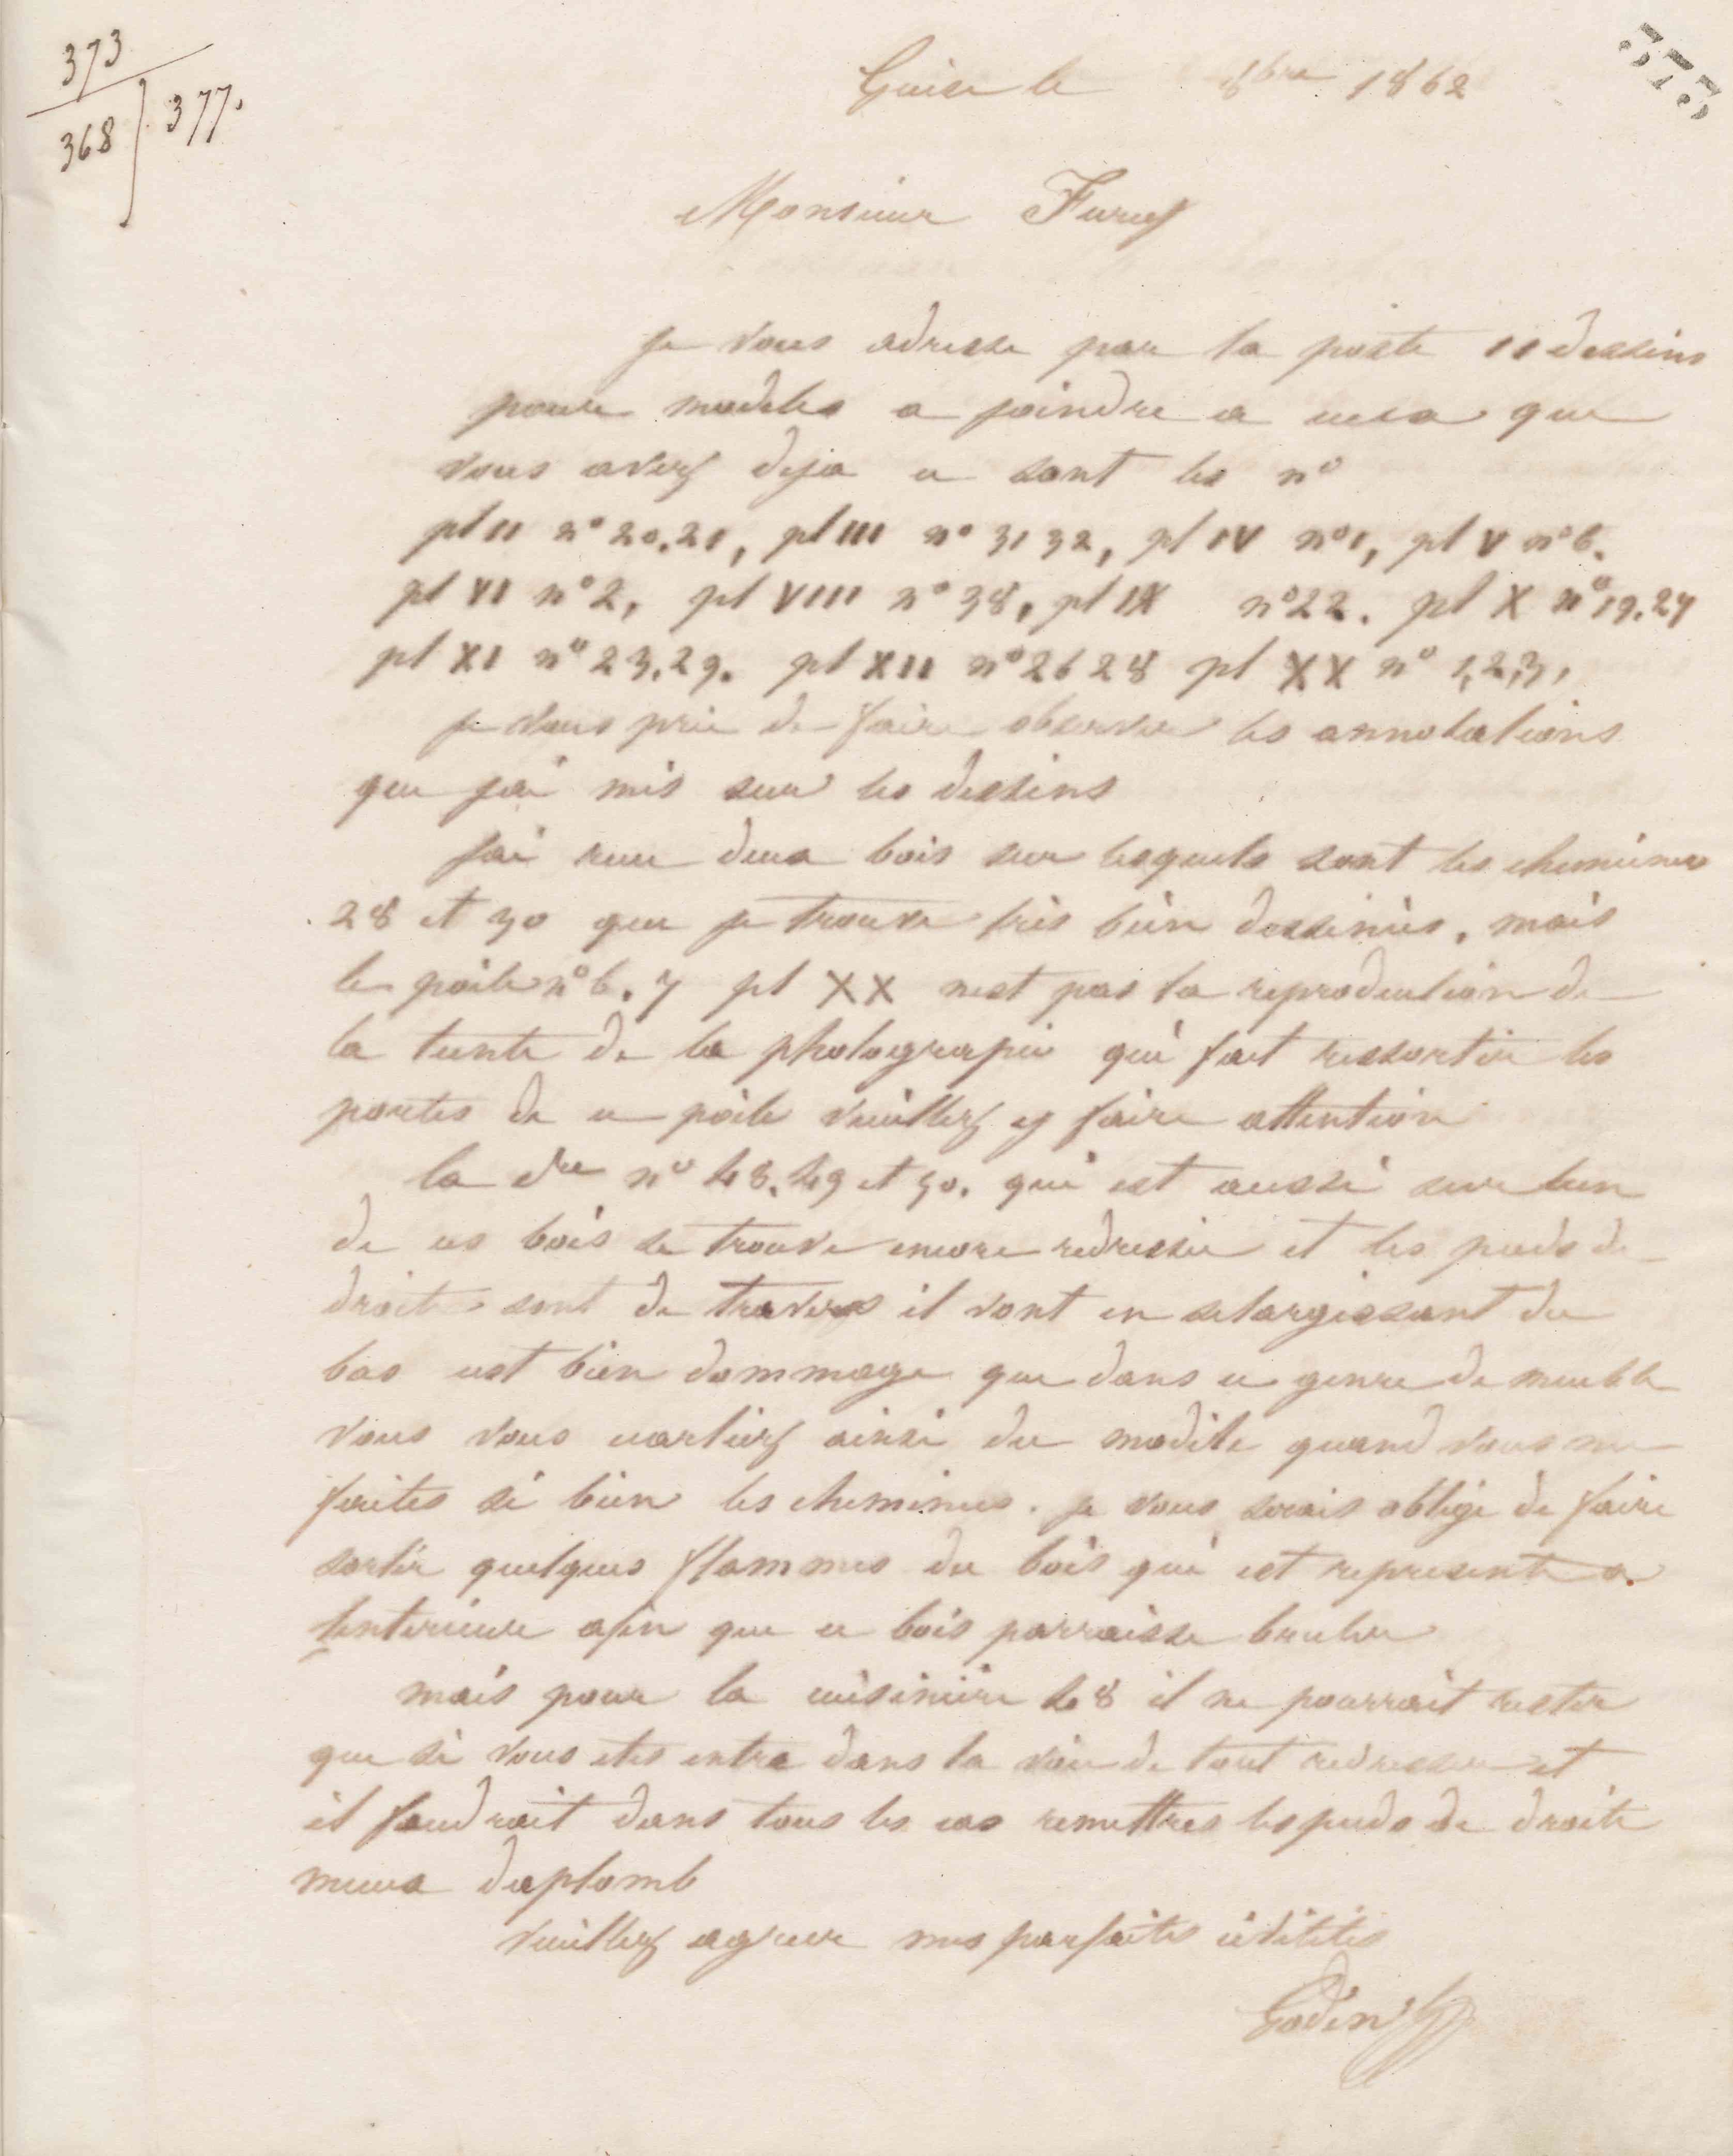 373
368 ) 377.
373
Guise le 8bre 1862
Monsieur Furey
je vous adresse par la poste 11 dessins
pour modeles a joindre a ceux que
vous avez deja ce sont les no
pl II no 20.21, pl III no 31 32, pl IV no 1, pl V no 6.
pl VI no 2, pl VIII no 38, pl IX no 22. pl X no 19.27
pl XI no 23.29. pl XII no 26 28 pl XX no 1,2,3,
je vous prie de faire observer les annotations
que jai mis sur les dessins
jai recu deux bois sur lesquels sont les cheminees
28 et 30 que je trouve très bien dessinées, mais
le poile no 6.7 pl XX nest pas la reproduction de
la teinte de la photograpie qui fait ressortir les
portes de ce poile veuillez y faire attention
la cre no 48.49 et 50. qui est aussi sur lun
de ces bois se trouve encore redressée et les pieds de
droite sont de travers il vont en selargissant du
bas cest bien dommage que dans ce genre de meuble
vous vous ecartiez ainsi du modèle quand vous me
faites si bien les cheminees. je vous serais obligé de faire
sortir quelques flammes du bois qui est represente a
linterieure afin que ce bois parraisse bruler
mais pour la cuisinière 48 il ne pourrait rester
que si vous etes entre dans la voie de tout redresser et
il faudrait dans tous les cas remettres les pieds de droite
mieux daplomb
veuillez agreer mes parfaites civilités
Godin